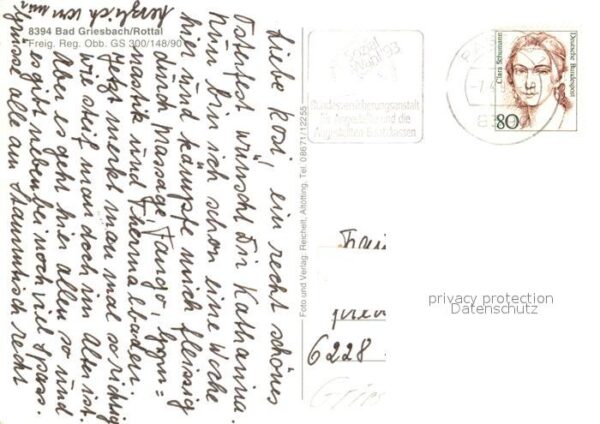 8394 Bad Griesbach/Rottal
Freig. Reg. Obb. GS 300/148/90
Liebe Rosi, ein recht schönes
Osterfest wünscht Dir Katharina.
Nun bin ich schon eine Woche
hier und kämpfe mich fleissig
durch Massage, Fango, Gym=
nastik und Thermalbaden.
Jetzt merkt man mal so richtig
wie steif man doch im Alter ist.
Aber es geht hier allen so und
es gibt nebenbei noch viel Spass.
Grüsse alle am Stammtisch recht
herzlich von mir
Foto und Verlag: Reichelt, Altötting, Tel. 08671/12255
Bundesversicherungsanstalt
für Angestellte und die
Angestellten-Ersatzkassen
Clara Schumann
Deutsche Bundespost
80
6228
privacy protection
Datenschutz